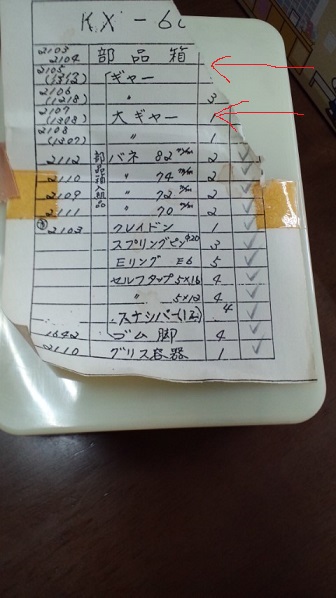 KX-6
2103
2104 部品箱
2105
(1313) ギャー
2106
(1218) 〃 3
2107
(1308) 大ギャー 1
2108
(1307) 〃 1
2112 部 バネ 82 m/m 2
2110 〃 74 m/m 2
2109 〃 72 m/m 2
2111 品 〃 70 m/m 2
2103 クレイドン 1
スプリングピン 3
Eリング E6 5
セルフタップ 5×16 4
〃 5×12 4
スナシバー(12) 4
1642 ゴム脚 4
2110 グリス容器 1